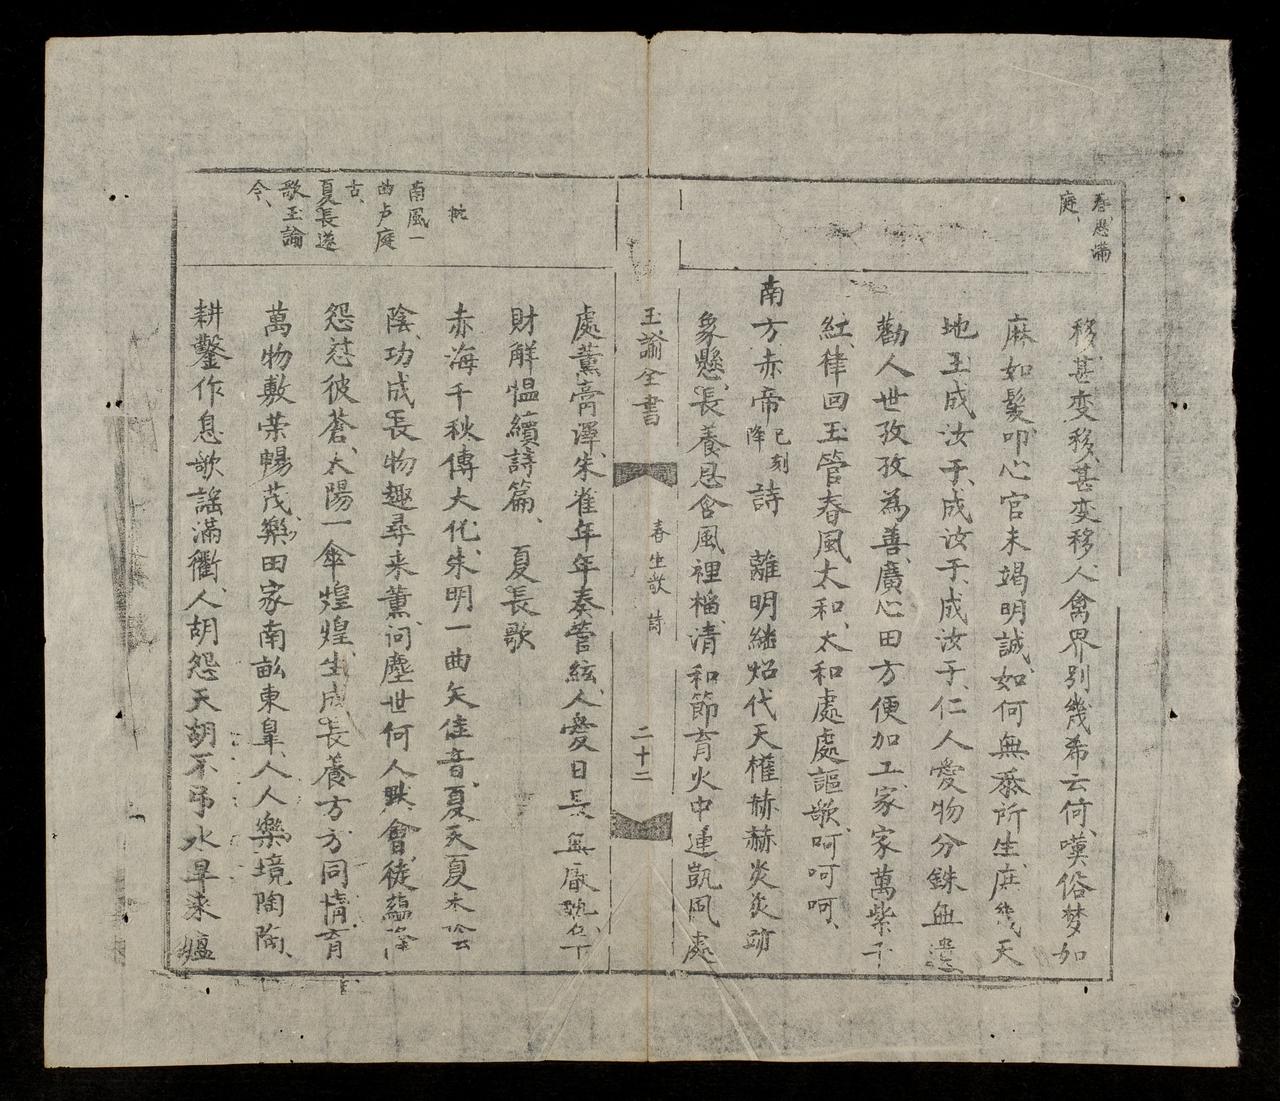 春思滿
庭、
移、甚变移、甚変移、人禽界别幾希云何、嘆俗梦如
麻如髮、叩心官未竭明誠、如何無忝所生、庶幾天
地玉成汝于、成汝于、成汝于、仁人愛物分銖無遺
勸人世孜孜為善、廣心田方便加工、家家萬紫千
紅、律回玉管春風太和、太和處處謳歌、呵呵呵、
南方赤帝 巳刻降 詩 離明継炤代天權赫赫炎炎
象懸、長養恩含風裡稲、清和節育火中蓮凱風處
玉諭全書 春生歌 詩 二十二
批
南風一
曲卢庭
古、
夏長遂
歌玉諭
令、
處薰膏澤、朱雀年年奏管絃、人愛日長無
財解愠續詩篇、 夏長歌
赤海千秋傳大化、朱明一曲矢佳音、夏天夏木
陰、功成長物趣尋来薰、问塵世何人默會、徒蘊隆
怨愁彼蒼、太陽一傘煌煌、生成長養方方同情、育
萬物敷荣暢茂、樂田家南畝東臯、人人樂境陶陶、
耕鑿作息歌謡滿衢、人胡怨天胡不弔水旱来